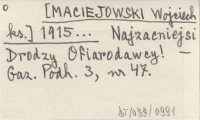 [MACIEJOWSKI Wojciech
ks.] 1915... Najzacniejsi
Drodzy Ofiarodawcy! —
Gaz. Podh. 3, nr 47.
AT/099/0991